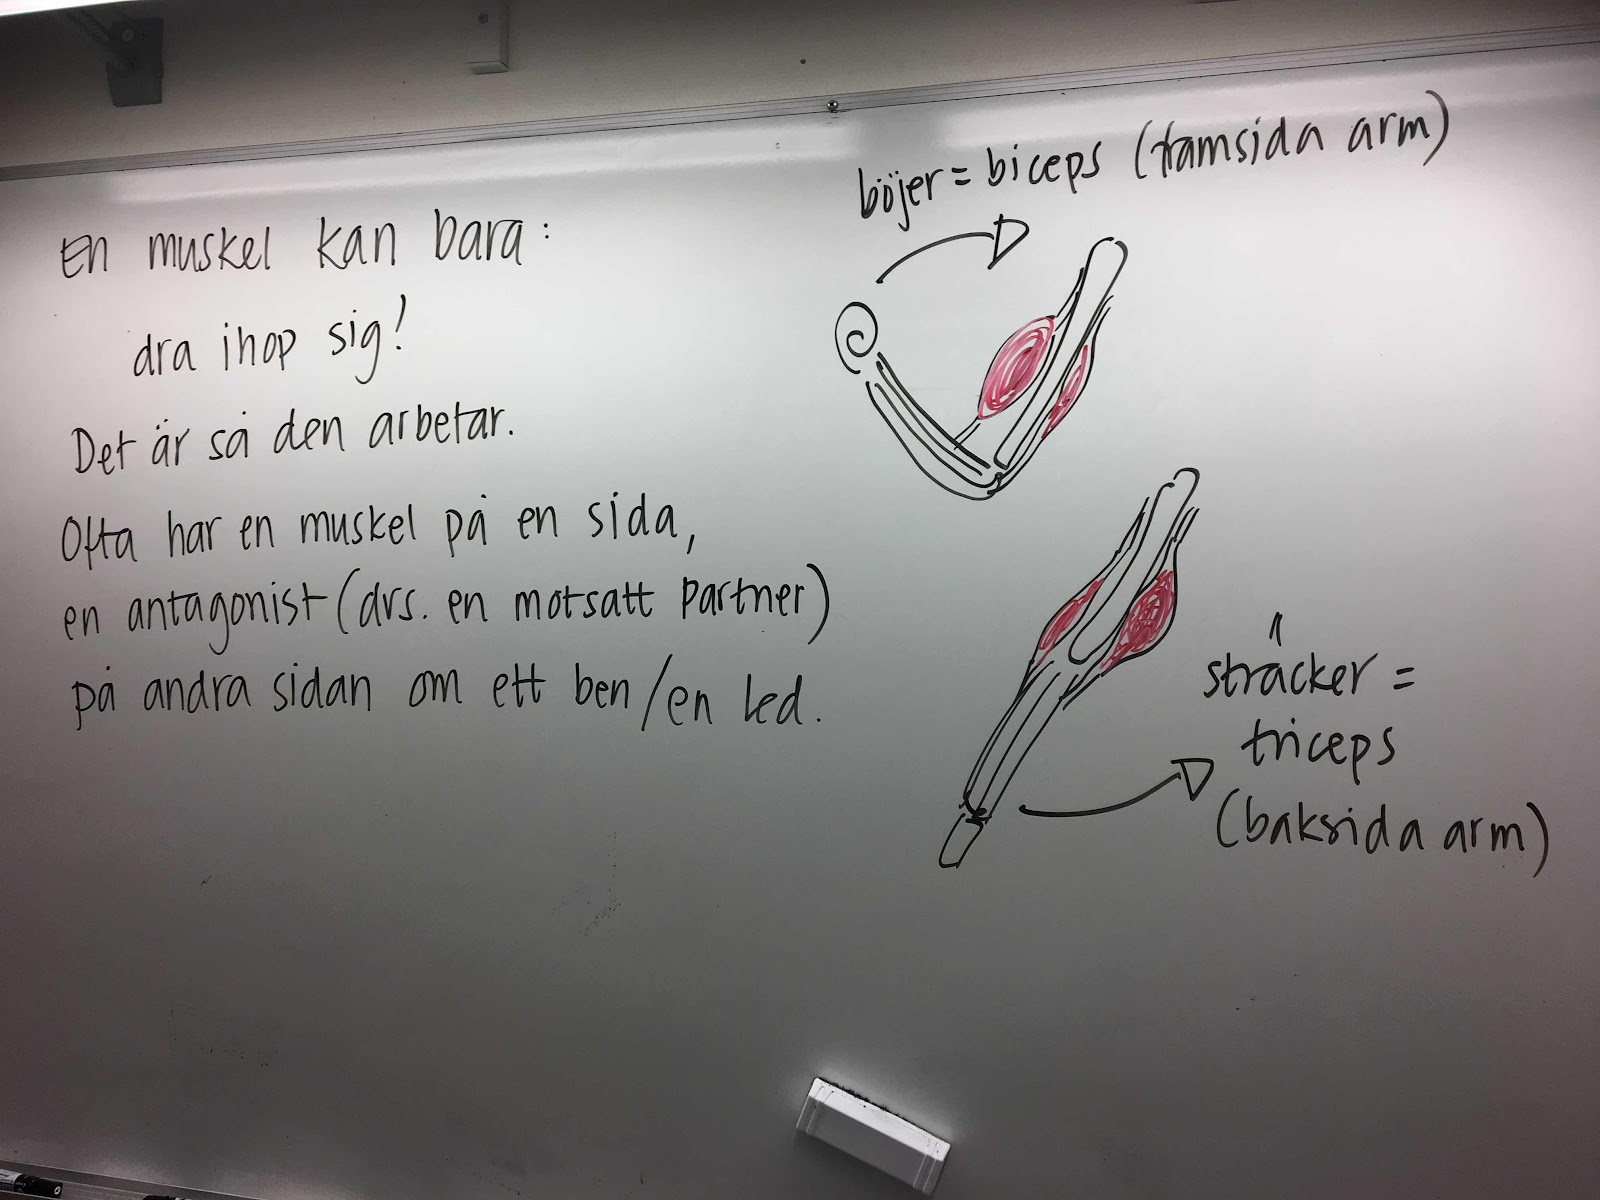 En muskel kan bara:
dra ihop sig!
Det är så den arbetar.
Ofta har en muskel på en sida,
en antagonist (dvs. en motsatt partner)
på andra sidan om ett ben/en led.
böjer = biceps (framsida arm)
sträcker =
triceps
(baksida arm)